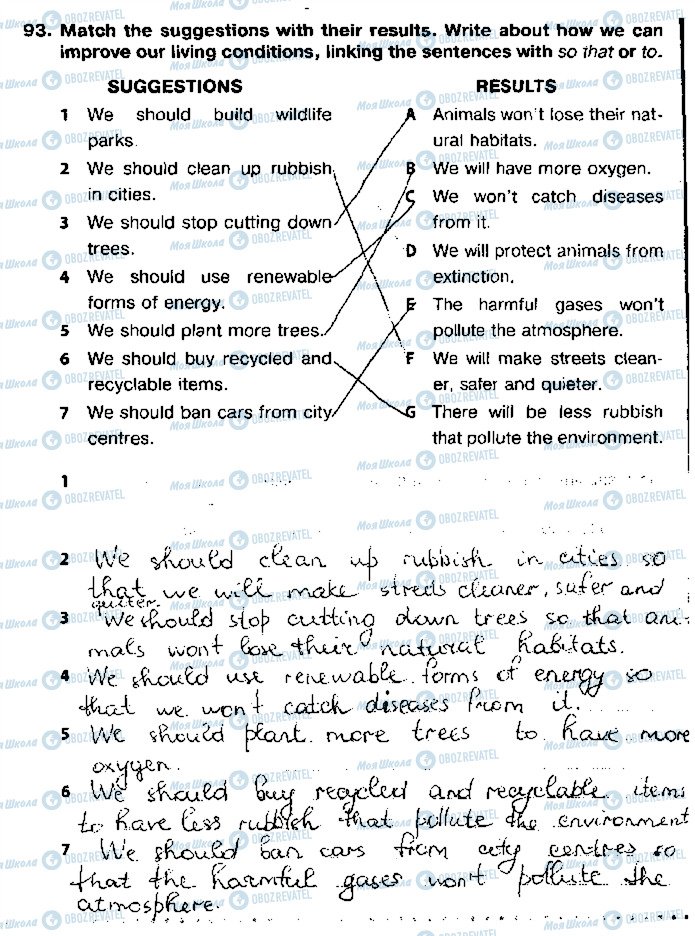 93. Match the suggestions with their results. Write about how we can
improve our living conditions, linking the sentences with so that or to.
SUGGESTIONS
1 We should build wildlife
parks.
2 We should clean up rubbish
in cities.
3 We should stop cutting down
trees.
4 We should use renewable
forms of energy.
5 We should plant more trees.
6 We should buy recycled and
recyclable items.
7 We should ban cars from city
centres.
RESULTS
A Animals won't lose their nat-
ural habitats.
B We will have more oxygen.
C We won't catch diseases
from it.
D We will protect animals from
extinction.
E The harmful gases won't
pollute the atmosphere.
F We will make streets clean-
er, safer and quieter.
G There will be less rubbish
that pollute the environment.
1
2 We should clean up rubbish in cities so
that we will make streets cleaner, safer and
quiter.
3 We should stop cutting down trees so that ani-
mals wont lose their natural habitats.
4 We should use renewable forms of energy so
that we won't catch diseases from it.
5 We should plant more trees to have more
oxygen.
6 We should buy recycled and recyclable items
to have less rubbish that pollute the environment
7 We should ban cars from city centres so
that the harmful gases won't pollute the
atmosphere.
Моя Школа OBOZREVATEL